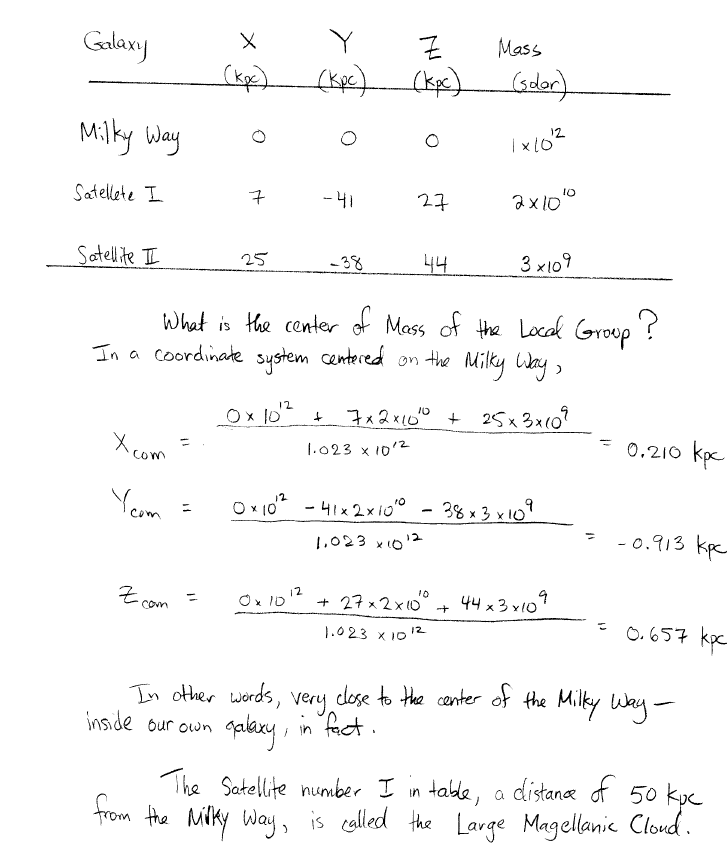 Galaxy X Y Z Mass
(kpc) (kpc) (kpc) (solar)
Milky Way 0 0 0 1x10¹²
Satellete I 7 -41 27 2x10¹⁰
Satellite II 25 -38 44 3x10⁹
What is the center of Mass of the Local Group?
In a coordinate system centered on the Milky Way,
0 x 10¹² + 7x2x10¹⁰ + 25x3x10⁹
Xcom = = 0.210 kpc
1.023 x 10¹²
0x10¹² - 41x2x10¹⁰ - 38x3x10⁹
Ycom = = -0.913 kpc
1.023 x10¹²
0x10¹² + 27x2x10¹⁰ + 44x3x10⁹
Zcom = = 0.657 kpc
1.023 x 10¹²
In other words, very close to the center of the Milky Way —
inside our own galaxy, in fact.
The Satellite number I in table, a distance of 50 kpc
from the Milky Way, is called the Large Magellanic Cloud.